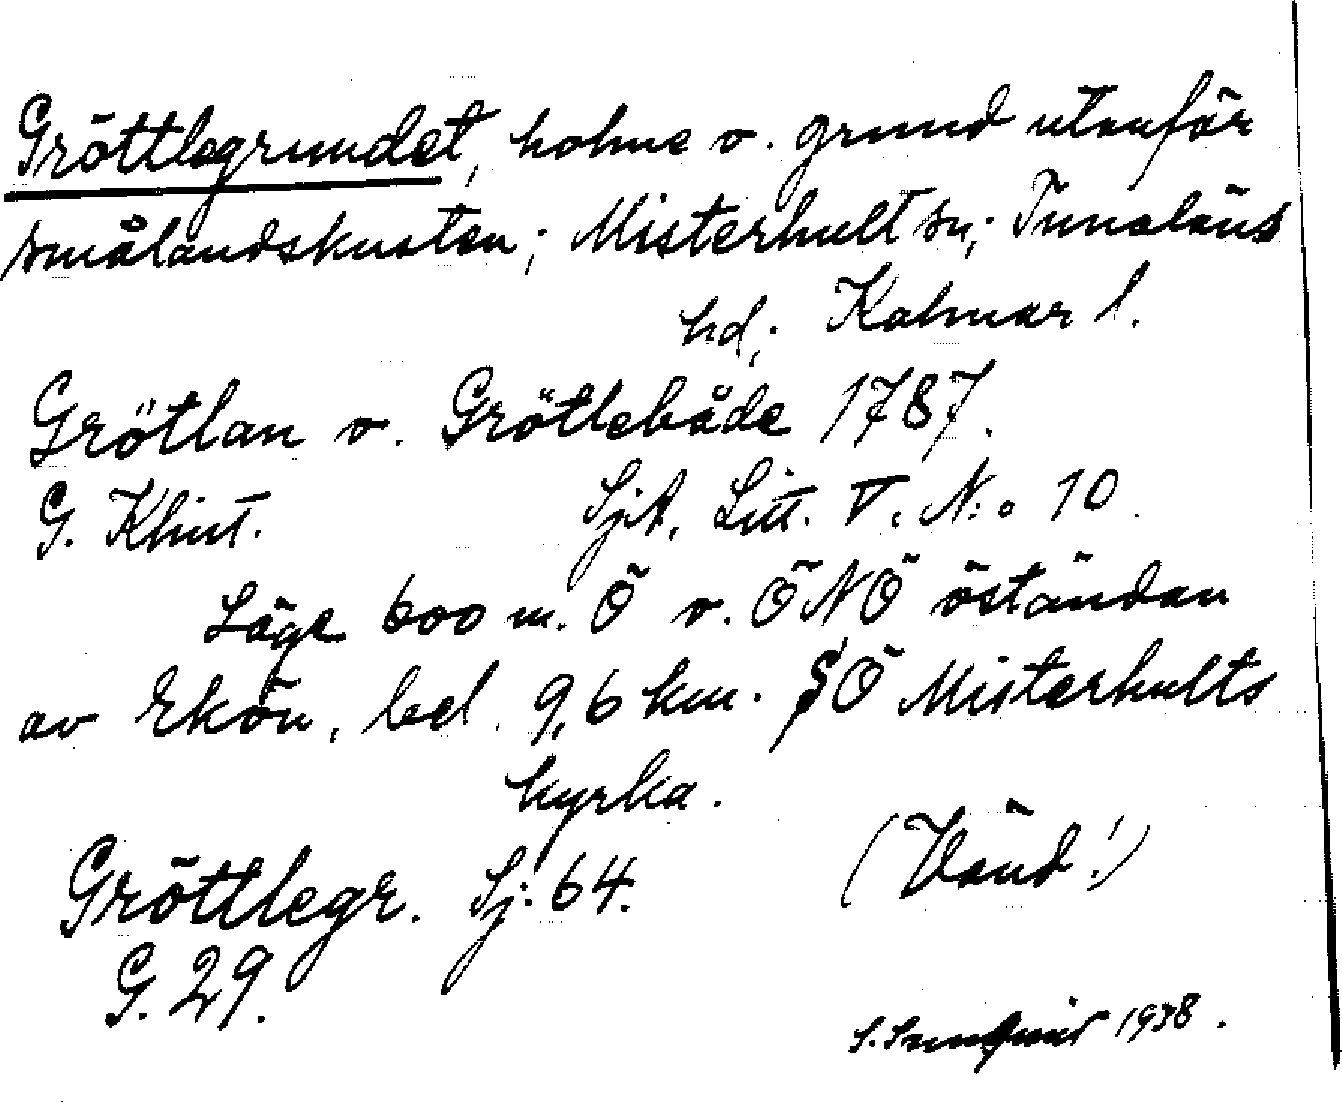 Gröttlegrundet, holme o. grund utanför
smålandskusten; Misterhult sn; Tunaläns
hd; Kalmar l.
Grötlan o. Gröttlebåde 1787.
G. Klint. SjA, Litt. V. N:o 10.
Läge 600 m. Ö o. ÖNÖ östándan
av Ekön, bel. 9,6 km. SÖ Misterhults
kyrka.
(Vänd!)
Gröttlegr. Sj. 64.
G. 29.
1938.